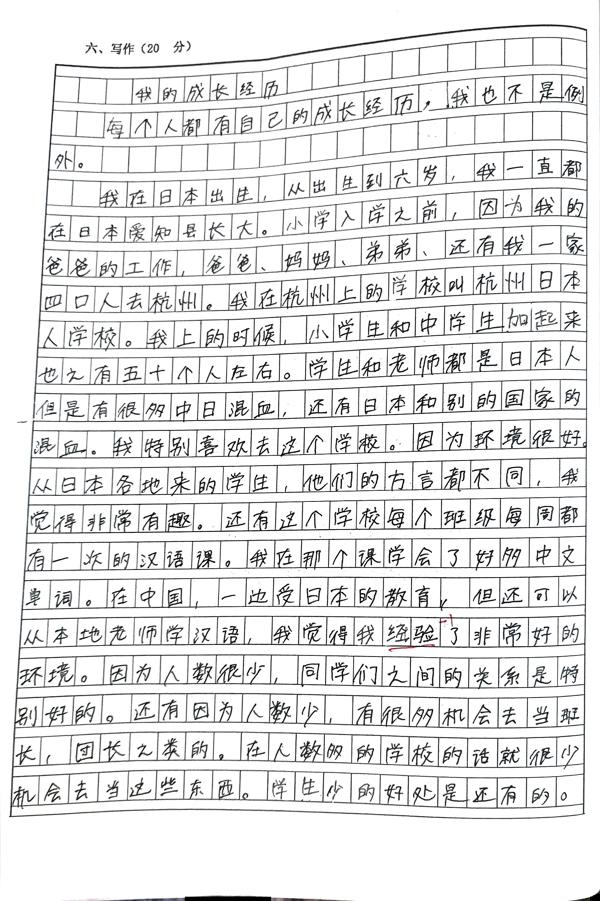 六、写作（20 分）
我的成长经历
每个人都有自己的成长经历，我也不是例
外。
我在日本出生，从出生到六岁，我一直都
在日本爱知县长大。小学入学之前，因为我的
爸爸的工作，爸爸、妈妈、弟弟、还有我一家
四口人去杭州。我在杭州上的学校叫杭州日本
人学校。我上的时候，小学生和中学生加起来
也之有五十个人左右。学生和老师都是日本人
但是有很多中日混血，还有日本和别的国家的
混血。我特别喜欢去这个学校。因为环境很好。
从日本各地来的学生，他们的方言都不同，我
觉得非常有趣。还有这个学校每个班级每周都
有一次的汉语课。我在那个课学会了好多中文
单词。在中国，一边受日本的教育，但还可以
从本地老师学汉语，我觉得我经验了非常好的
-1
环境。因为人数很少，同学们之间的关系是特
别好的。还有因为人数少，有很多机会去当班
长，团长之类的。在人数多的学校的话就很少
机会去当这些东西。学生少的好处是还有的。